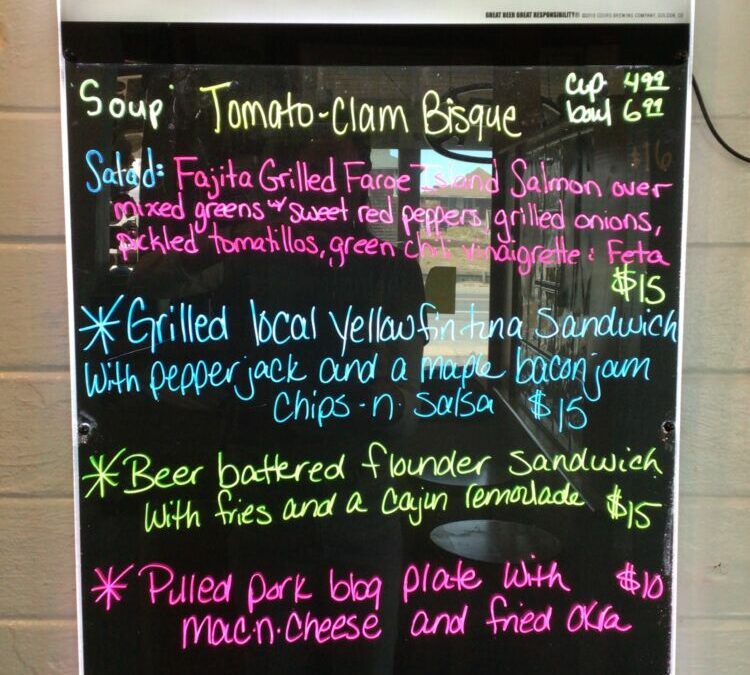 GREAT BEER GREAT RESPONSIBILITY® ©2012 COORS BREWING COMPANY, GOLDEN, CO
Soup: Tomato-Clam Bisque cup 4.99
bowl 6.99
Salad: Fajita Grilled Faroe Island Salmon over
mixed greens w/ sweet red peppers, grilled onions,
pickled tomatillos, green chili vinaigrette & Feta
$15
* Grilled local yellowfin tuna sandwich
with pepperjack and a maple bacon jam
chips-n-salsa $15
* Beer battered flounder sandwich
with fries and a cajun remoulade $15
* Pulled pork bbq plate with $10
mac.n.cheese and fried okra